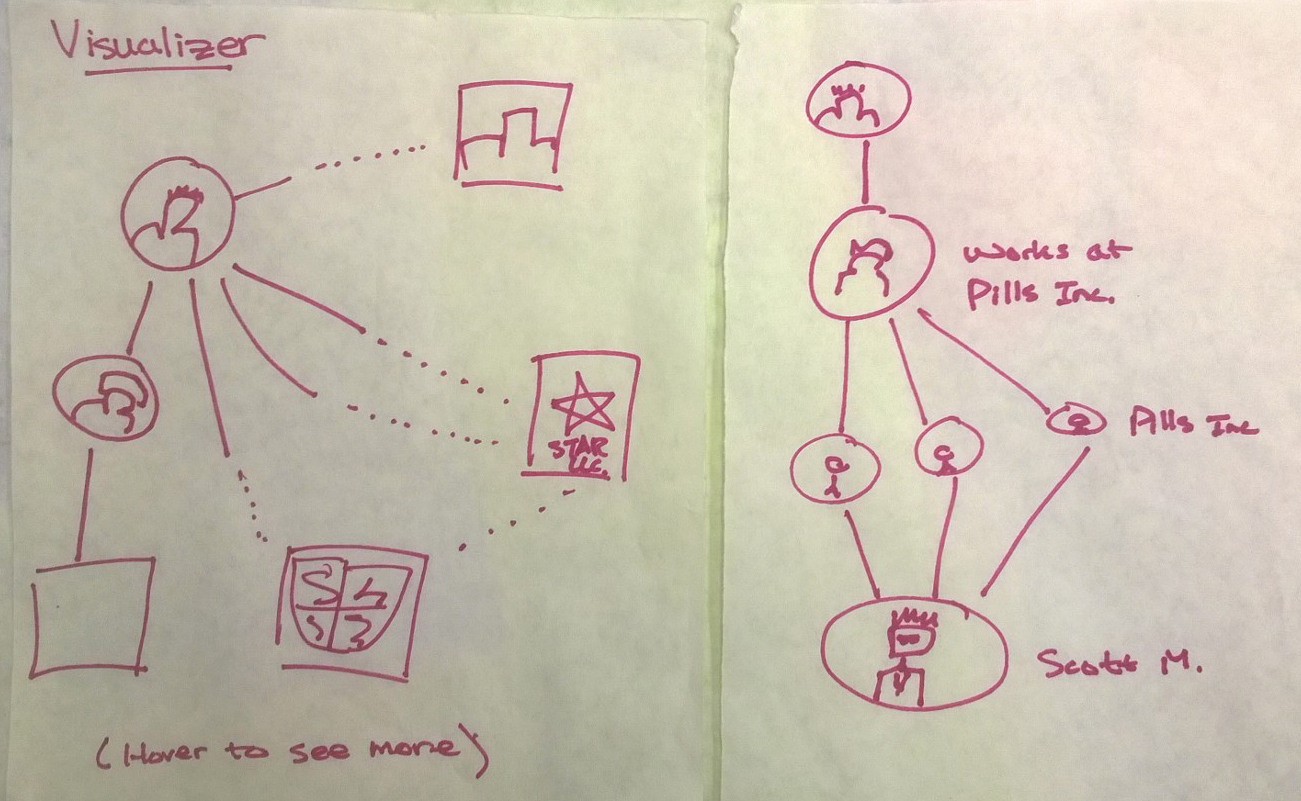 Visualizer
STAR
LLC.
(Hover to see more)
works at
Pills Inc.
Pills Inc
Scott M.